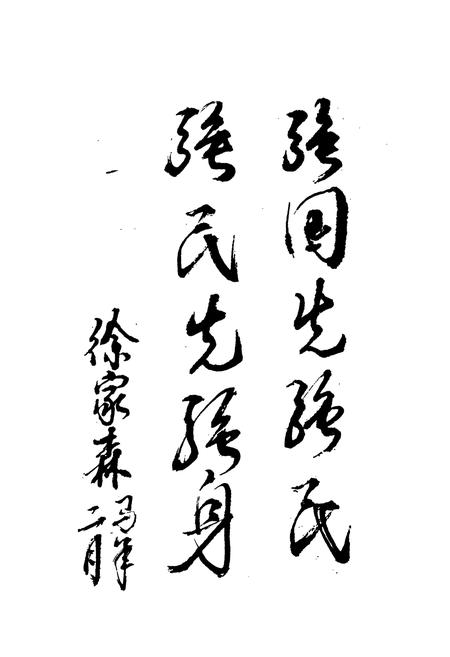 强国先强民
强民先强身
徐家森
马年
二月